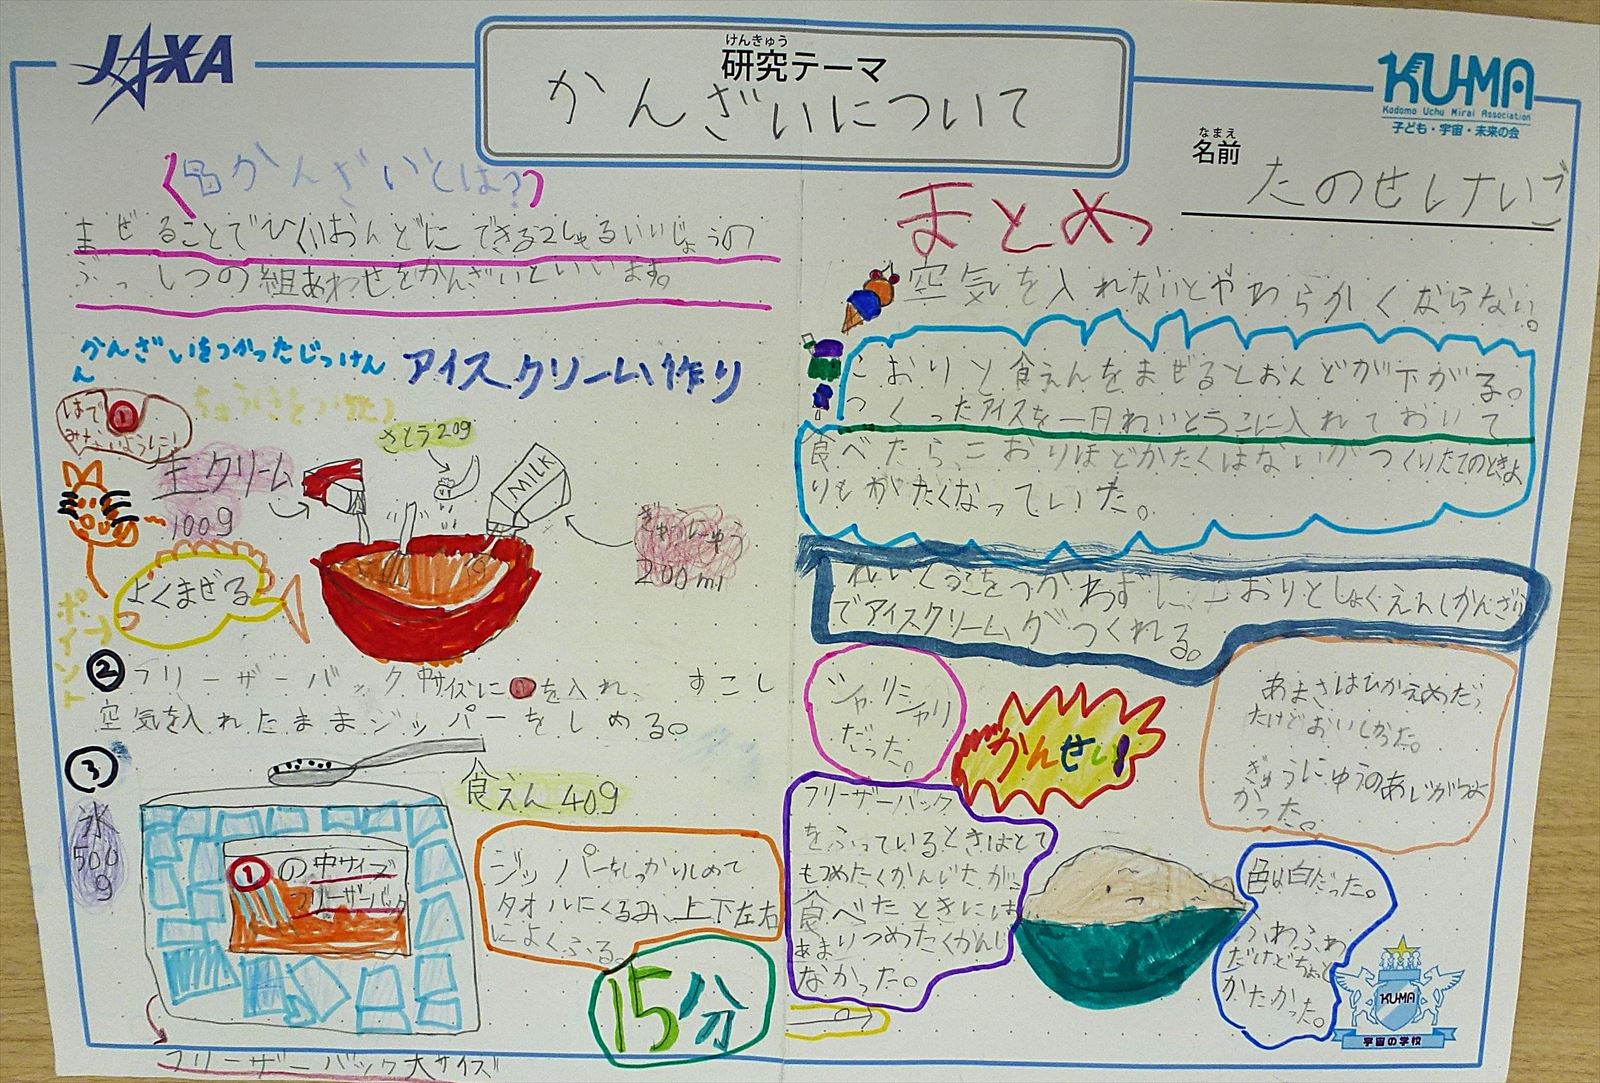 JAXA
けんきゅう
研究テーマ
かんざいについて
KU-MA
Kodomo Uchu Mirai Association
子ども・宇宙・未来の会
なまえ
名前
たのせしけいご
かんざいとは?
まぜることでひくいおんどにできる2しゅるいいじょうの
ぶっしつの組あわせをかんざいといいます。
かんざいをつかったじっけん
アイスクリーム作り
さとう20g
生クリーム
100g
MILK
ぎゅうにゅう
200ml
よくまぜる
ポイント
②フリーザーバック中サイズに①を入れ、すこし
空気を入れたままジッパーをしめる。
③
氷
500
g
食えん40g
①の中サイズ
フリーザーバック
ジッパーをしっかりしめて
タオルにくるみ、上下左右
によくふる。
15分
フリーザーバック大サイズ
まとめ
空気を入れないとやわらかくならない。
こおりと食えんをまぜるとおんどが下がる。
つくったアイスを一日れいとうこに入れておいて
食べたら、こおりほどかたくはないがつくりたてのときよ
りもかたくなっていた。
れいとうこをつかわずにこおりとしょくえん(かんざい)
でアイスクリームがつくれる。
シャリシャリ
だった。
かんせい!
あまさはひかえめだっ
たけどおいしかった。
ぎゅうにゅうのあじがつよ
かった。
フリーザーバック
をふっているときはとて
もつめたくかんじたが、
食べたときには
あまりつめたくかんじ
なかった。
色は白だった。
ふわふわ
だけどちょっと
かたかった。
KU-MA
宇宙の学校